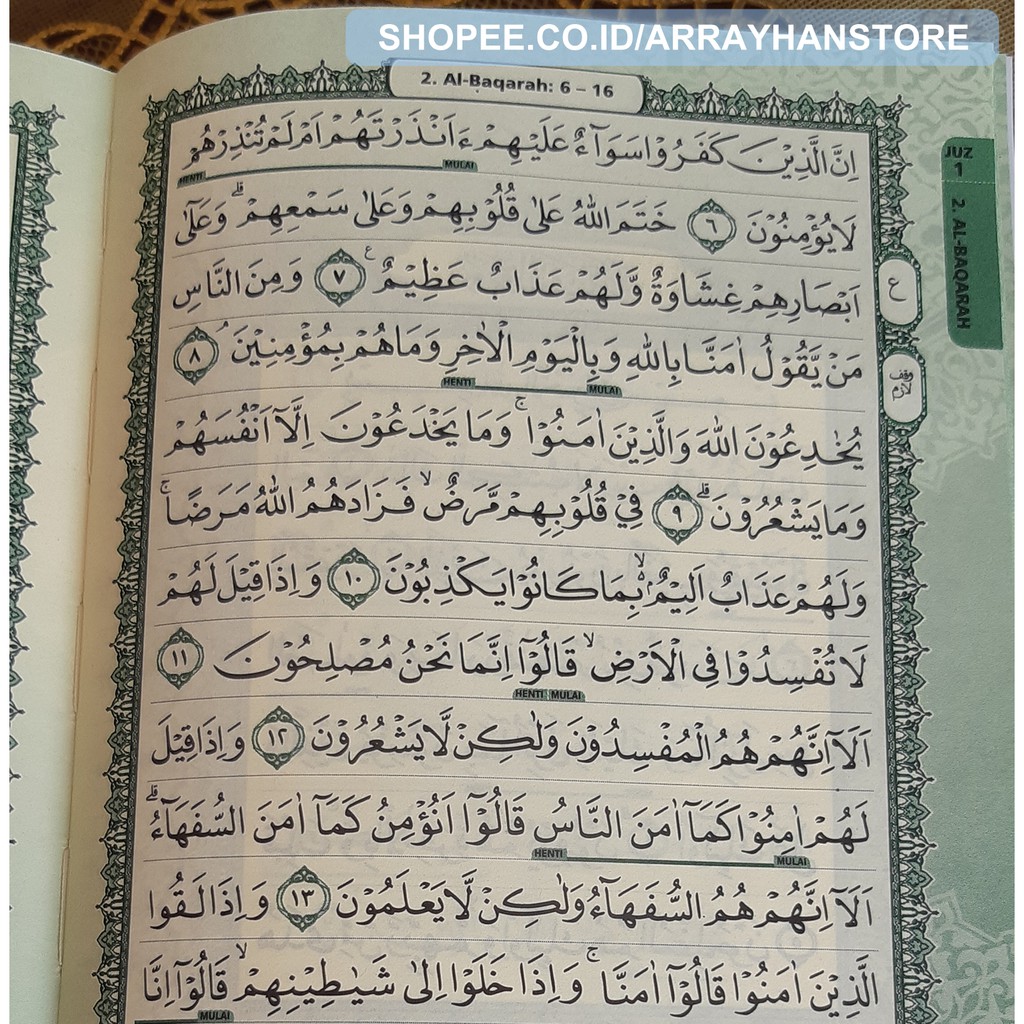 SHOPEE.CO.ID/ARRAYHANSTORE
2. Al-Baqarah: 6 – 16
JUZ
1
2. AL-BAQARAH
اِنَّ الَّذِيْنَ كَفَرُوْا سَوَاۤءٌ عَلَيْهِمْ ءَاَنْذَرْتَهُمْ اَمْ لَمْ تُنْذِرْهُمْ
MULAI HENTI
لَا يُؤْمِنُوْنَ ٦ خَتَمَ اللّٰهُ عَلٰى قُلُوْبِهِمْ وَعَلٰى سَمْعِهِمْ ۗ وَعَلٰٓى
ع
اَبْصَارِهِمْ غِشَاوَةٌ وَّلَهُمْ عَذَابٌ عَظِيْمٌ ࣖ ٧ وَمِنَ النَّاسِ
مَنْ يَّقُوْلُ اٰمَنَّا بِاللّٰهِ وَبِالْيَوْمِ الْاٰخِرِ وَمَا هُمْ بِمُؤْمِنِيْنَ ۘ ٨
وقف لازم
MULAI HENTI
يُخٰدِعُوْنَ اللّٰهَ وَالَّذِيْنَ اٰمَنُوْا ۚ وَمَا يَخْدَعُوْنَ اِلَّآ اَنْفُسَهُمْ
وَمَا يَشْعُرُوْنَ ۗ ٩ فِيْ قُلُوْبِهِمْ مَّرَضٌ ۙ فَزَادَهُمُ اللّٰهُ مَرَضًا ۚ
وَلَهُمْ عَذَابٌ اَلِيْمٌ ۢ ۙ بِمَا كَانُوْا يَكْذِبُوْنَ ١٠ وَاِذَا قِيْلَ لَهُمْ
لَا تُفْسِدُوْا فِى الْاَرْضِ ۙ قَالُوْٓا اِنَّمَا نَحْنُ مُصْلِحُوْنَ ١١
HENTI MULAI
اَلَآ اِنَّهُمْ هُمُ الْمُفْسِدُوْنَ وَلٰكِنْ لَّا يَشْعُرُوْنَ ١٢ وَاِذَا قِيْلَ
لَهُمْ اٰمِنُوْا كَمَآ اٰمَنَ النَّاسُ قَالُوْٓا اَنُؤْمِنُ كَمَآ اٰمَنَ السُّفَهَاۤءُ ۗ
MULAI HENTI
اَلَآ اِنَّهُمْ هُمُ السُّفَهَاۤءُ وَلٰكِنْ لَّا يَعْلَمُوْنَ ١٣ وَاِذَا لَقُوا
الَّذِيْنَ اٰمَنُوْا قَالُوْٓا اٰمَنَّا ۚ وَاِذَا خَلَوْا اِلٰى شَيٰطِيْنِهِمْ ۙ قَالُوْٓا اِنَّا
MULAI